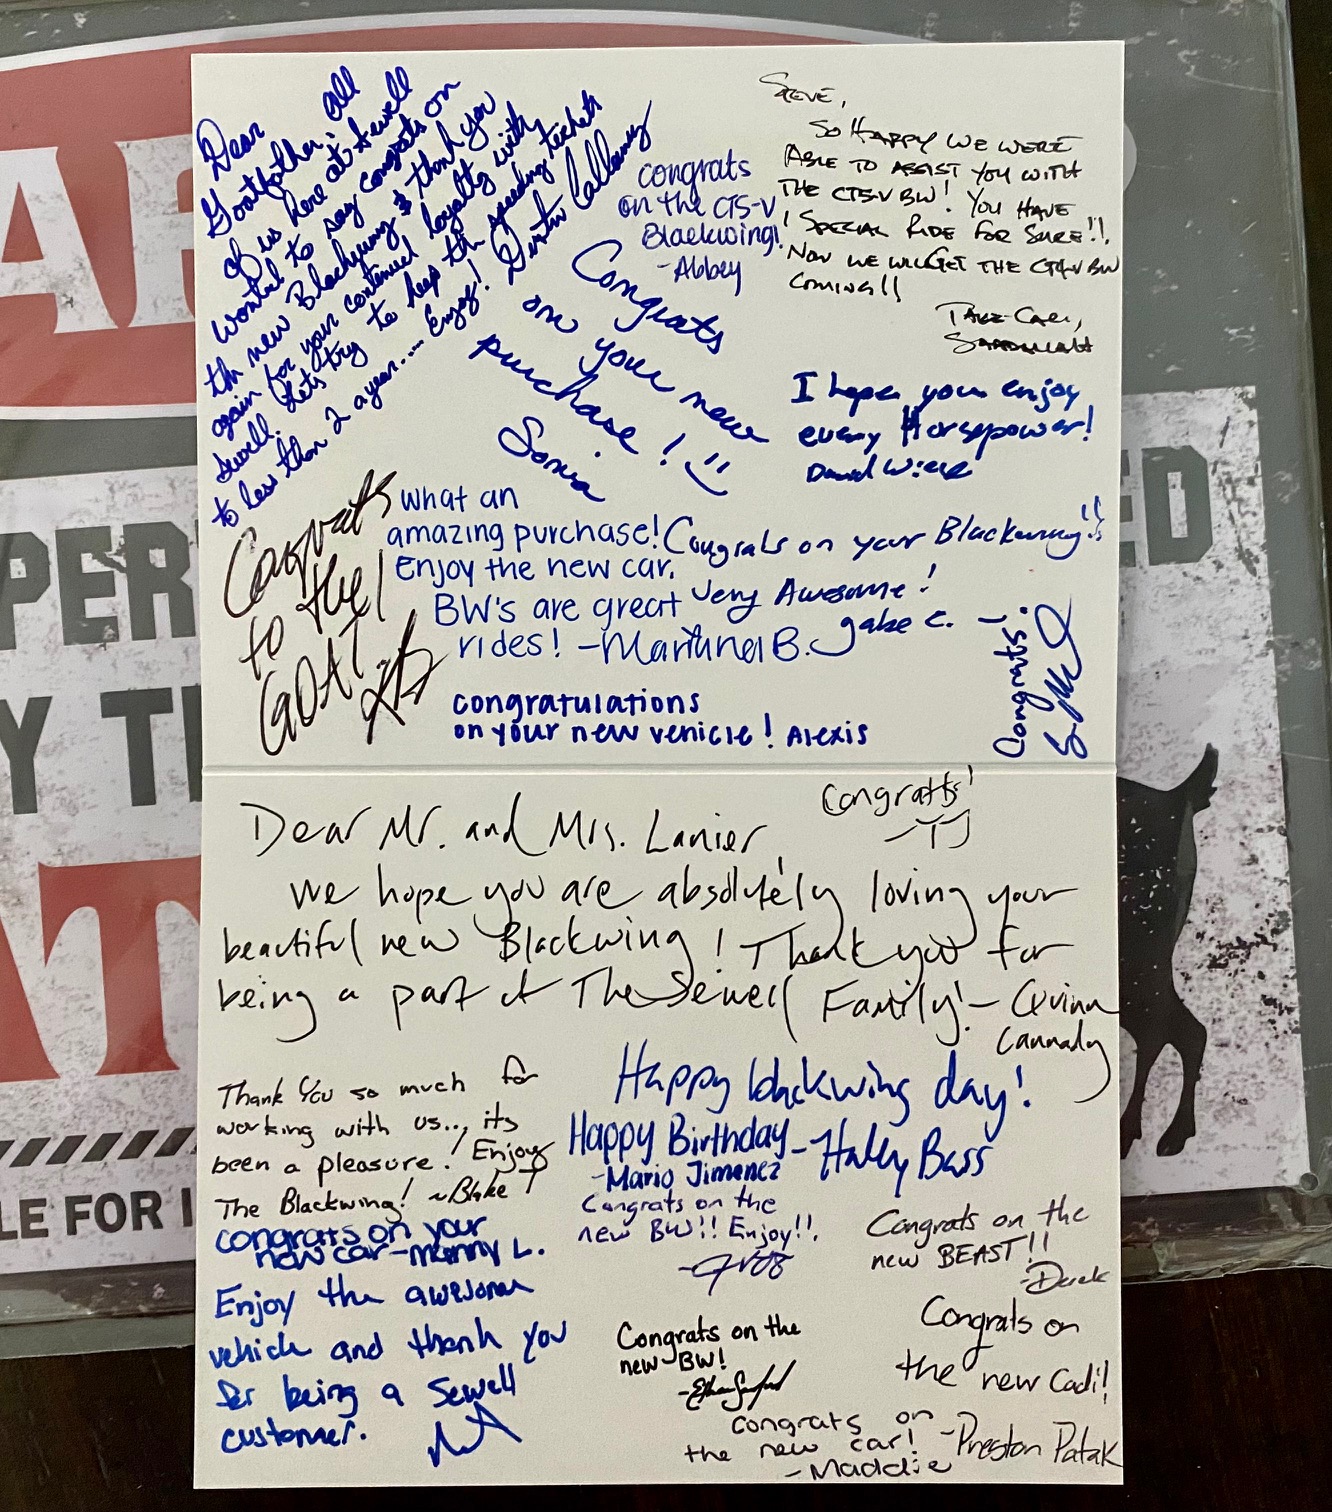 Dear
Goatfather, all
of us here at Sewell
wanted to say congrats on
the new Blackwing & thank you
again for your continued loyalty with
Sewell. Lets try to keep the speeding tickets
to less than 2 a year.... Enjoy! Dustin Callaway
congrats
on the CT5-V
Blackwing!
-Abbey
Steve,
So Happy we were
Able to assist you with
the CT5-V BW! You have
1 Special Ride for Sure!!
Now we will get the CT4-V BW
coming!!
Take Care,
Congrats
on your new
purchase!
Sonia
I hope you enjoy
every Horsepower!
David
Congrats
to the
GOAT!
what an
amazing purchase!
Enjoy the new car.
BW's are great
rides! -Martina B.
Congrats on your Blackwing!!
Very Awesome!
Gabe C.
Congrats!
congratulations
on your new vehicle! Alexis
Congrats!
-TJ
Dear Mr. and Mrs. Lanier,
We hope you are absolutely loving your
beautiful new Blackwing! Thank you for
being a part of The Sewell Family! - Quinn
Cannady
Thank You so much for
working with us... its
been a pleasure! Enjoy
The Blackwing! ~Blake T
Happy blackwing day!
-Haley Bass
Happy Birthday
-Mario Jimenez
congrats on your
new car-Manny L.
Congrats on the
new BW!! Enjoy!!
Congrats on the
new BEAST!!
-Derek
Enjoy the awesome
vehicle and thank you
for being a Sewell
customer.
Congrats on the
new BW!
Congrats on
the new Cadi!
-Preston Patak
congrats on
the new car!
-Maddie
PER
ED
Y T
LE FOR I